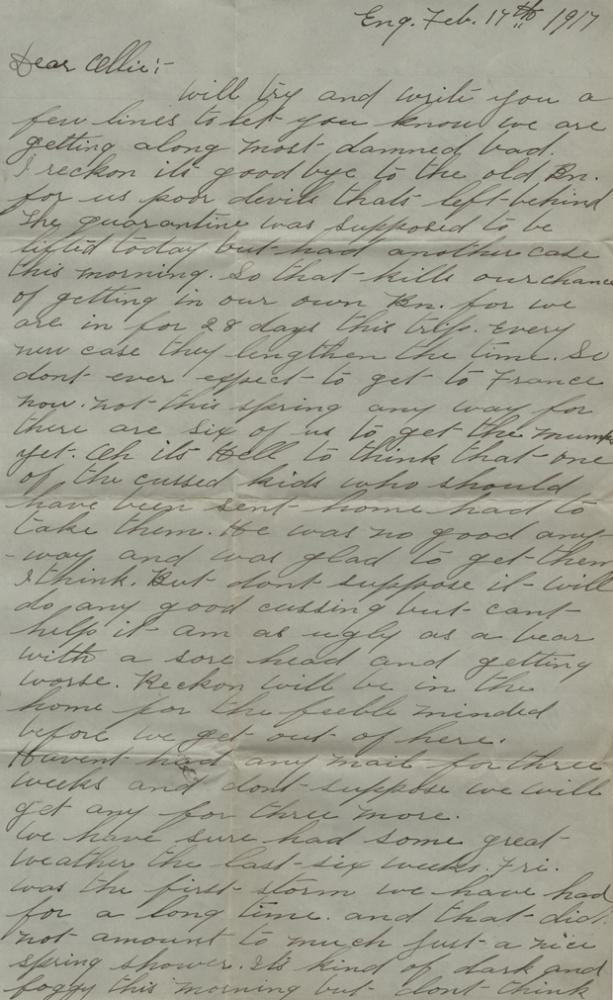 Eng. Feb. 17th 1917
Dear Ollie:-
Will try and write you a
few lines to let you know we are
getting along most damned bad.
I reckon its good bye to the old Bn.
for us poor devils thats left behind
The quarantine was supposed to be
lifted today but had another case
this morning. So that kills our chance
of getting in our own Bn. for we
are in for 28 days this trip. Every
new case they lengthen the time. So
dont ever expect to get to France
now. not this spring any way for
there are six of us to get the mumps
yet. Oh its Hell to think that one
of the cussed kids who should
have been sent home had to
take them. He was no good any-
-way and was glad to get them
I think. But dont suppose it will
do any good cussing but cant
help it am as ugly as a bear
with a sore head and getting
worse. Reckon will be in the
home for the feeble minded
before we get out of here.
Havent had any mail for three
weeks and dont suppose we will
get any for three more.
We have sure had some great
weather the last six weeks. Fri.
was the first storm we have had
for a long time. and that did
not amount to much just a nice
spring shower. Its kind of dark and
foggy this morning but dont think